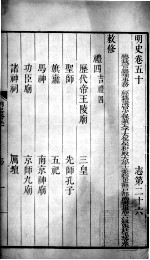 明史卷五十　志第二十六
敕修
禮四 吉禮四
歷代帝王陵廟　三皇
聖師　先師孔子
旗纛　五祀
馬神　南京神廟
功臣廟　京師九廟
諸神祠　厲壇